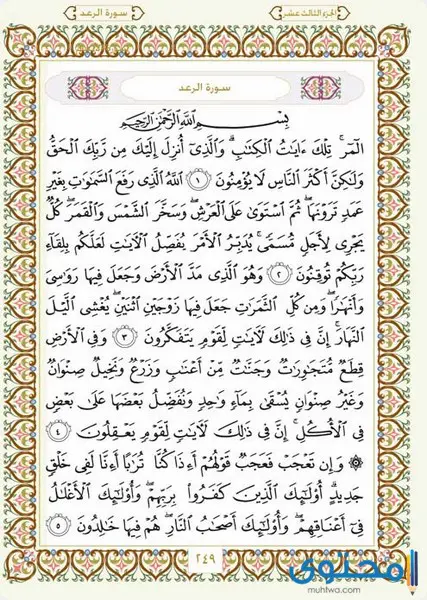 الجزء الثالث عشر
سورة الرعد
سورة الرعد
بِسْمِ اللَّهِ الرَّحْمَٰنِ الرَّحِيمِ
الٓمٓر ۚ تِلْكَ ءَايَٰتُ الْكِتَٰبِ ۗ وَالَّذِىٓ أُنزِلَ إِلَيْكَ مِن رَّبِّكَ الْحَقُّ
وَلَٰكِنَّ أَكْثَرَ النَّاسِ لَا يُؤْمِنُونَ ١ اللَّهُ الَّذِى رَفَعَ السَّمَٰوَٰتِ بِغَيْرِ
عَمَدٍ تَرَوْنَهَا ۖ ثُمَّ اسْتَوَىٰ عَلَى الْعَرْشِ ۖ وَسَخَّرَ الشَّمْسَ وَالْقَمَرَ ۖ كُلٌّ
يَجْرِى لِأَجَلٍ مُّسَمًّى ۚ يُدَبِّرُ الْأَمْرَ يُفَصِّلُ الْءَايَٰتِ لَعَلَّكُم بِلِقَآءِ
رَبِّكُمْ تُوقِنُونَ ٢ وَهُوَ الَّذِى مَدَّ الْأَرْضَ وَجَعَلَ فِيهَا رَوَٰسِىَ
وَأَنْهَٰرًا ۖ وَمِن كُلِّ الثَّمَرَٰتِ جَعَلَ فِيهَا زَوْجَيْنِ اثْنَيْنِ ۖ يُغْشِى الَّيْلَ
النَّهَارَ ۚ إِنَّ فِى ذَٰلِكَ لَءَايَٰتٍ لِّقَوْمٍ يَتَفَكَّرُونَ ٣ وَفِى الْأَرْضِ
قِطَعٌ مُّتَجَٰوِرَٰتٌ وَجَنَّٰتٌ مِّنْ أَعْنَٰبٍ وَزَرْعٌ وَنَخِيلٌ صِنْوَانٌ
وَغَيْرُ صِنْوَانٍ يُسْقَىٰ بِمَآءٍ وَٰحِدٍ وَنُفَضِّلُ بَعْضَهَا عَلَىٰ بَعْضٍ
فِى الْأُكُلِ ۚ إِنَّ فِى ذَٰلِكَ لَءَايَٰتٍ لِّقَوْمٍ يَعْقِلُونَ ٤
۞ وَإِن تَعْجَبْ فَعَجَبٌ قَوْلُهُمْ أَءِذَا كُنَّا تُرَٰبًا أَءِنَّا لَفِى خَلْقٍ
جَدِيدٍ ۗ أُو۟لَٰٓئِكَ الَّذِينَ كَفَرُوا۟ بِرَبِّهِمْ ۖ وَأُو۟لَٰٓئِكَ الْأَغْلَٰلُ
فِىٓ أَعْنَاقِهِمْ ۖ وَأُو۟لَٰٓئِكَ أَصْحَٰبُ النَّارِ ۖ هُمْ فِيهَا خَٰلِدُونَ ٥
٢٤٩
محتوى
muhtwa.com